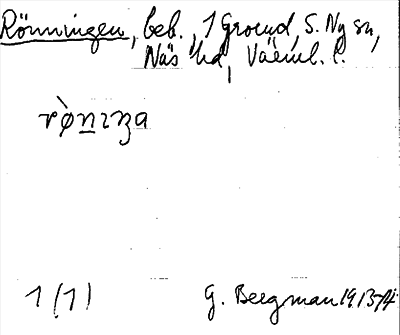 Rönningen, beb., 1 Groend, S. Ny sn,
Näs hd, Värml. l.
rø̀nɪŋa
1 (1)
G. Bergman 1913-14